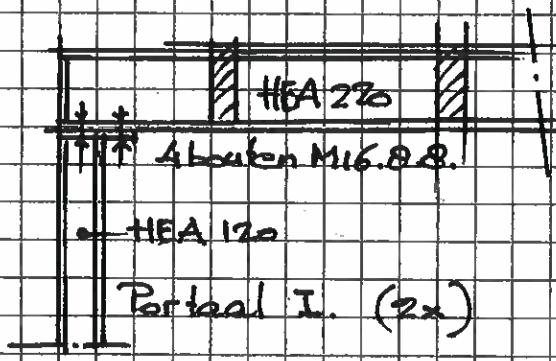 HEA 220
4 bouten M16.8.8.
HEA 120
Portaal I. (2x)